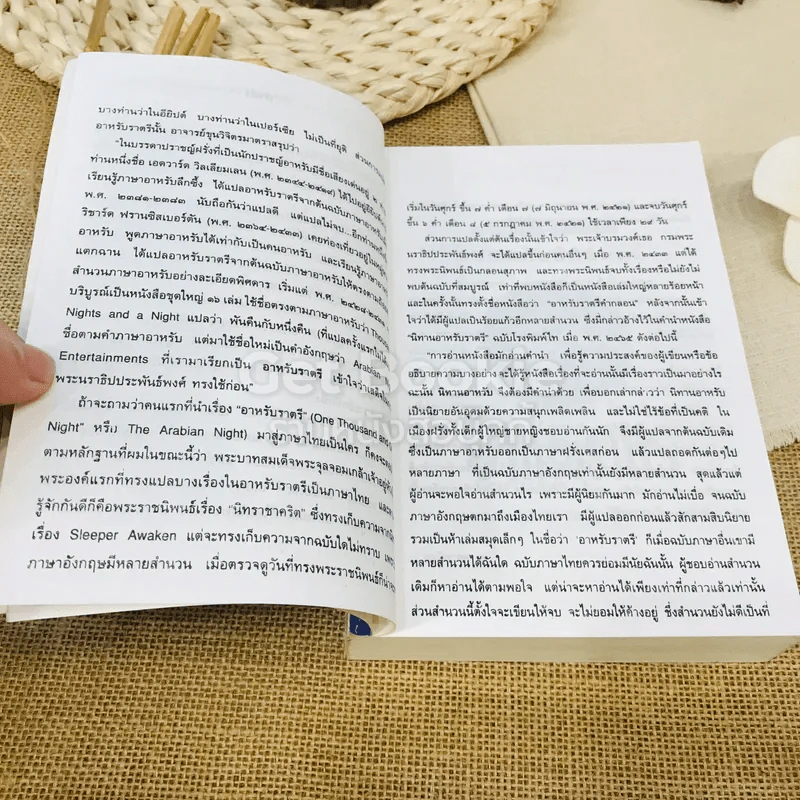 บางท่านว่าในอียิปต์ บางท่านว่าในเปอร์เซีย ไม่เป็นที่ยุติ ส่วน
อาหรับราตรีนั้น อาจารย์ขุนวิจิตรมาตราสรุปว่า
"ในบรรดาปราชญ์ฝรั่งที่เป็นนักปราชญ์อาหรับมีชื่อเสียงเด่นอยู่ ๒
ท่านหนึ่งชื่อ เอดวาร์ด วิลเลียมเลน (พ.ศ. ๒๓๔๔-๒๔๑๙) ได้ไปอยู่
เรียนรู้ภาษาอาหรับลึกซึ้ง ได้แปลอาหรับราตรีจากต้นฉบับภาษา
พ.ศ. ๒๓๘๑-๒๓๘๓ นับถือกันว่าแปลดี แต่แปลไม่จบ...อีกท่าน
ริชาร์ด ฟรานซิสเบอร์ตัน (พ.ศ. ๒๓๖๔-๒๔๓๓) เคยท่องเที่ยวอยู่ใน
อาหรับ พูดภาษาอาหรับได้เท่ากับเป็นคนอาหรับ และเรียนรู้ภาษา
แตกฉาน ได้แปลอาหรับราตรีจากต้นฉบับภาษาอาหรับให้ตรงตาม
สำนวนภาษาอาหรับอย่างละเอียดพิศดาร เริ่มแต่ พ.ศ. ๒๔๒๘-
บริบูรณ์เป็นหนังสือชุดใหญ่ ๑๖ เล่ม ใช้ชื่อตรงตามภาษาอาหรับว่า
Nights and a Night แปลว่า พันคืนกับหนึ่งคืน (ที่แปลครั้งแรก
ชื่อตามคำภาษาอาหรับ แต่มาใช้ชื่อใหม่เป็นคำอังกฤษว่า Arabian
Entertainments ที่เรามาเรียกเป็น อาหรับราตรี เข้าใจว่า
พระนราธิปประพันธ์พงศ์ ทรงใช้ก่อน"
ถ้าจะถามว่าคนแรกที่นำเรื่อง "อาหรับราตรี" (One Thousand and
Night" หรือ The Arabian Night) มาสู่ภาษาไทยเป็นใคร ก็คงจะ
ตามหลักฐานที่ผมในขณะนี้ว่า พระบาทสมเด็จพระจุลจอมเกล้าเจ้าอยู่หัว
พระองค์แรกที่ทรงแปลบางเรื่องในอาหรับราตรีเป็นภาษาไทย และ
รู้จักกันดีก็คือพระราชนิพนธ์เรื่อง "นิทราชาคริต" ซึ่งทรงเก็บความจาก
เรื่อง Sleeper Awaken แต่จะทรงเก็บความจากฉบับใดไม่ทราบ
ภาษาอังกฤษมีหลายสำนวน เมื่อตรวจดูวันที่ทรงพระราชนิพนธ์
เริ่มในวันศุกร์ ขึ้น ๗ ค่ำ เดือน ๗ (๗ มิถุนายน พ.ศ. ๒๔๒๑) และจบวันศุกร์
ขึ้น ๖ ค่ำ เดือน ๘ (๕ กรกฎาคม พ.ศ. ๒๔๒๑) ใช้เวลาเพียง ๒๙ วัน
ส่วนการแปลตั้งแต่ต้นเรื่องนั้นเข้าใจว่า พระเจ้าบรมวงศ์เธอ กรมพระ
นราธิปประพันธ์พงศ์ จะได้แปลขึ้นก่อนคนอื่นๆ เมื่อ พ.ศ. ๒๔๓๓ แต่ได้
ทรงพระนิพนธ์เป็นกลอนสุภาพ และทรงพระนิพนธ์จบทั้งเรื่องหรือไม่ยังไม่
พบต้นฉบับที่สมบูรณ์ เท่าที่พบหนังสือก็เป็นหนังสือเล่มใหญ่หลายร้อยหน้า
และในครั้งนั้นทรงตั้งชื่อหนังสือว่า "อาหรับราตรีคำกลอน" หลังจากนั้นเข้า
ใจว่าได้มีผู้แปลเป็นร้อยแก้วอีกหลายสำนวน ซึ่งมีกล่าวอ้างไว้ในคำนำหนังสือ
"นิทานอาหรับราตรี" ฉบับโรงพิมพ์ไท เมื่อ พ.ศ. ๒๔๖๕ ดังต่อไปนี้
"การอ่านหนังสือมักอ่านคำนำ เพื่อรู้ความประสงค์ของผู้เขียนหรือข้อ
อธิบายความบางอย่าง จะได้รู้หนังสือเรื่องที่จะอ่านนั้นมีเรื่องราวเป็นมาอย่างไร
ฉะนั้น นิทานอาหรับ จึงต้องมีคำนำด้วย เพื่อบอกเล่ากล่าวว่า นิทานอาหรับ
เป็นนิยายอันอุดมด้วยความสนุกเพลิดเพลิน และไม่ใช่ไร้ข้อที่เป็นคติ ใน
เมืองฝรั่งทั้งเด็กผู้ใหญ่ชายหญิงชอบอ่านกันนัก จึงมีผู้แปลจากต้นฉบับเดิม
ซึ่งเป็นภาษาอาหรับออกเป็นภาษาฝรั่งเศสก่อน แล้วแปลถอดกันต่อๆไป
หลายภาษา ที่เป็นฉบับภาษาอังกฤษเท่านั้นยังมีหลายสำนวน สุดแล้วแต่
ผู้อ่านจะพอใจอ่านสำนวนไร เพราะมีผู้นิยมกันมาก มักอ่านไม่เบื่อ จนฉบับ
ภาษาอังกฤษตกมาถึงเมืองไทยเรา มีผู้แปลออกก่อนแล้วสักสามสิบนิยาย
รวมเป็นห้าเล่มสมุดเล็กๆ ในชื่อว่า 'อาหรับราตรี' ก็เมื่อฉบับภาษาอื่นเขามี
หลายสำนวนได้ฉันใด ฉบับภาษาไทยควรย่อมมีนัยฉันนั้น ผู้ชอบอ่านสำนวน
เดิมก็หาอ่านได้ตามพอใจ แต่น่าจะหาอ่านได้เพียงเท่าที่กล่าวแล้วเท่านั้น
ส่วนสำนวนนี้ตั้งใจจะเขียนให้จบ จะไม่ยอมให้ค้างอยู่ ซึ่งสำนวนยังไม่ดีเป็นที่